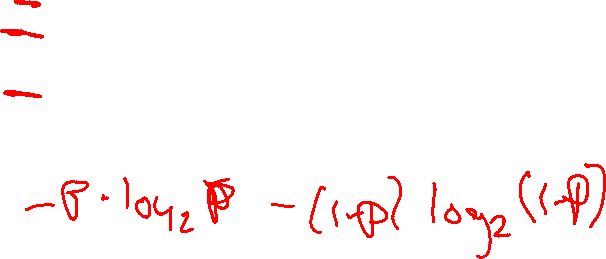 -P · log₂ P - (1-P) log₂ (1-P)